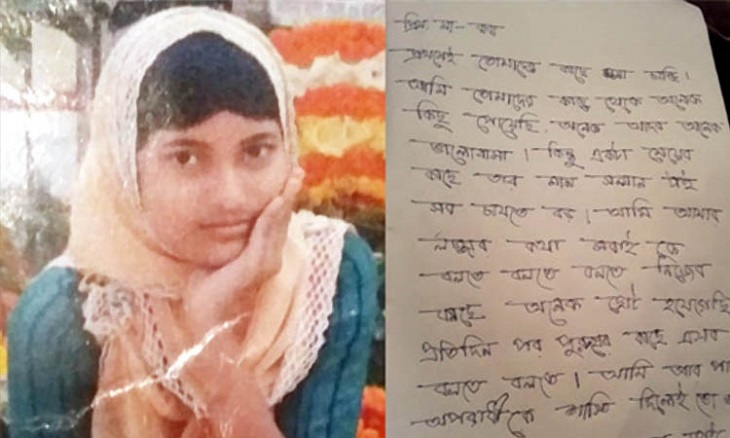 প্রিয় মা-বাবা
প্রথমেই তোমাদের কাছে ক্ষমা চাচ্ছি।
আমি তোমাদের কাছ থেকে অনেক
কিছু পেয়েছি, অনেক আদর অনেক
ভালোবাসা। কিন্তু একটা মেয়ের
কাছে তার মান সম্মান টাই
সব চাইতে বড়। আমি আমার
লজ্জার কথা সবাই কে
বলতে বলতে বলতে নিজের
কাছে অনেক ছোট হয়েগেছি
প্রতিদিন পর পুরুষের কাছে এসব
বলতে বলতে। আমি আর
অপরাধীকে শাস্তি দিলেই তো